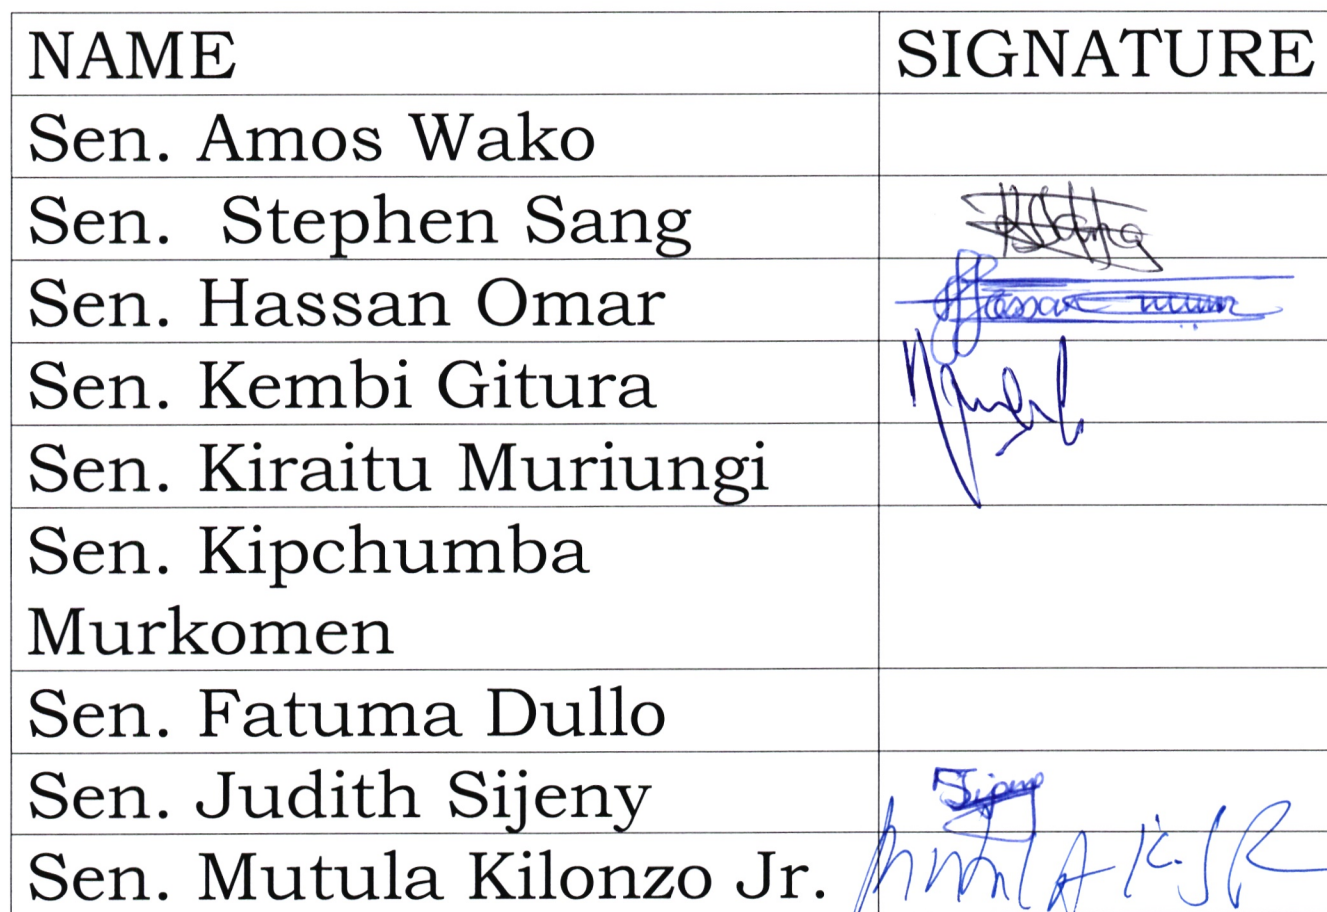 NAME SIGNATURE
Sen. Amos Wako
Sen. Stephen Sang
Sen. Hassan Omar Hassan
Sen. Kembi Gitura
Sen. Kiraitu Muriungi
Sen. Kipchumba
Murkomen
Sen. Fatuma Dullo
Sen. Judith Sijeny Sijeny
Sen. Mutula Kilonzo Jr.